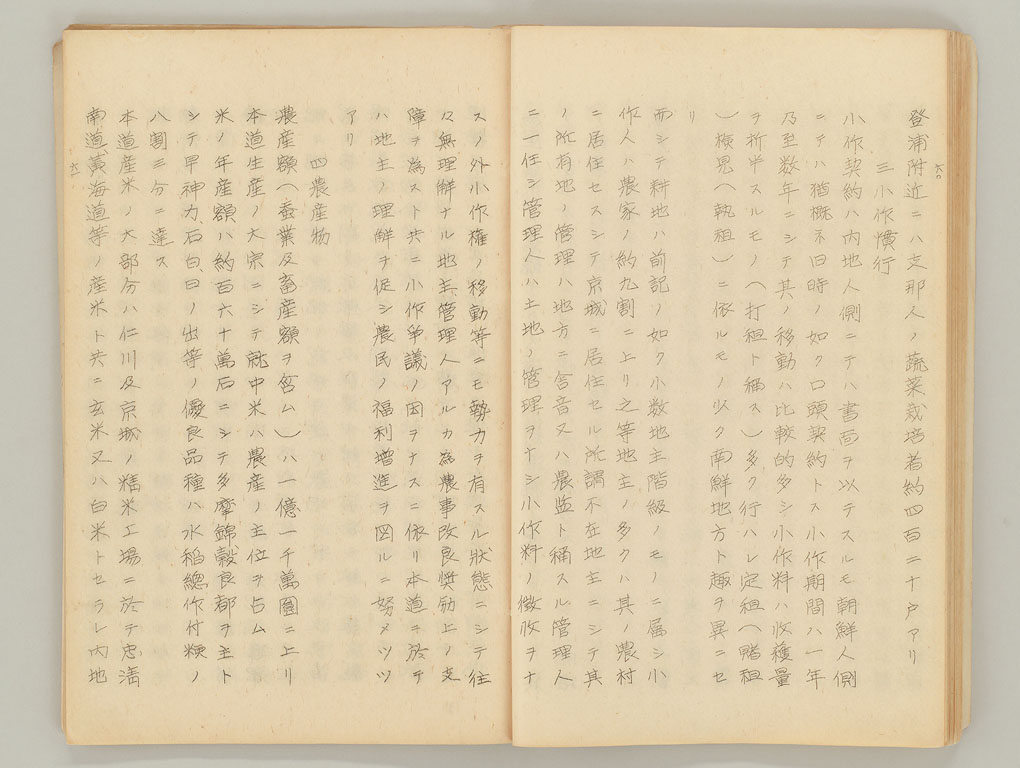 六〇
登浦附近ニハ支那人ノ蔬菜栽培者約四百二十戸アリ
三小作慣行
小作契約ハ内地人側ニテハ書面ヲ以テスルモ朝鮮人側
ニテハ猶概不旧時ノ如ク口頭契約トス小作期間ハ一年
乃至数年ニシテ其ノ移動ハ比較的多シ小作料ハ收穫量
ヲ折半スルモノ(打租ト稱ス)多ク行ハレ定租(賭租
)検見(執租)ニ依ルモノ以ク南鮮地方ト趣ヲ異ニセ
リ
而シテ耕地ハ前記ノ如ク小数地主階級ノモノニ屬シ小
作人ハ農家ノ約九割ニ上リ之等地主ノ多クハ其ノ農村
ニ居住セスシテ京城ニ居住セル所謂不在地主ニシテ其
ノ所有地ノ管理ハ地方ニ舎音又ハ農監ト稱スル管理人
ニ一任シ管理人ハ土地ノ管理ヲナシ小作料ノ徴收ヲナ
スノ外小作権ノ移動等ニモ勢力ヲ有スル狀態ニシテ往
々無理解ナル地主管理人アルカ為農事改良奨励上ノ支
障ヲ為スト共ニ小作争議ノ因ヲナスニ依リ本道ニ於テ
ハ地主ノ理解ヲ促シ農民ノ福利増進ヲ図ルニ努メツツ
アリ
四農産物
農産額(蚕業及畜産額ヲ含ム)ハ一億一千萬圓ニ上リ
本道生産ノ大宗ニシテ就中米ハ農産ノ主位ヲ占ム
米ノ年産額ハ約百六十萬石ニシテ多摩錦穀良都ヲ主ト
シテ早神力、石白、日ノ出等ノ優良品種ハ水稲總作付粳ノ
八割三分ニ達ス
本道産米ノ大部分ハ仁川及京城ノ精米工場ニ於テ忠淸
南道黃海道等ノ産米ト共ニ玄米又ハ白米トセラレ内地
六一